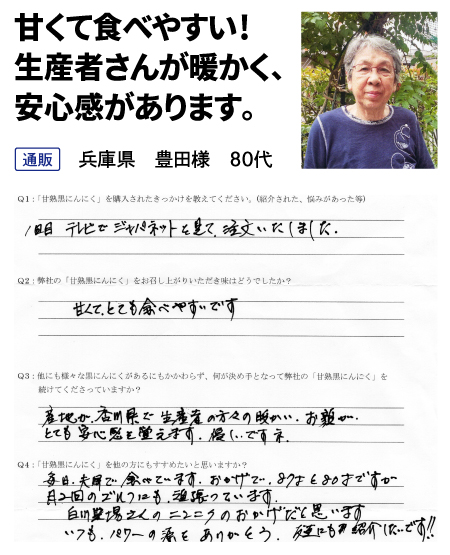 甘くて食べやすい!
生産者さんが暖かく、
安心感があります。
通販 兵庫県 豊田様 80代
Q1:「甘熟黒にんにく」を購入されたきっかけを教えてください。(紹介された、悩みがあった等)
1回目 テレビで ジャパネットを見て、注文いたしました.
Q2:弊社の「甘熟黒にんにく」をお召し上がりいただき味はどうでしたか?
甘くて、とても食べやすいです
Q3:他にも様々な黒にんにくがあるにもかかわらず、何が決め手となって弊社の「甘熟黒にんにく」を
続けてくださっていますか?
産地が、香川県で 生産者の方々の暖かい、お顔が、
とても安心感を覚えます. 優しいですネ.
Q4:「甘熟黒にんにく」を他の方にもすすめたいと思いますか?
毎日、夫婦で食べています. おかげで、87才と80才ですが
月2回のゴルフにも、頑張っています.
農場さんのニンニクのおかげだと思います
いつも、パワーの源を ありがとう. 紹介したいです!!